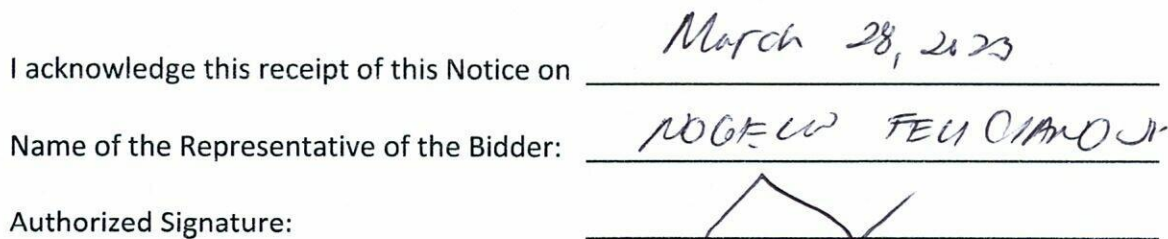 I acknowledge this receipt of this Notice on March 28, 2023
Name of the Representative of the Bidder: FELICIANO Jr
Authorized Signature: